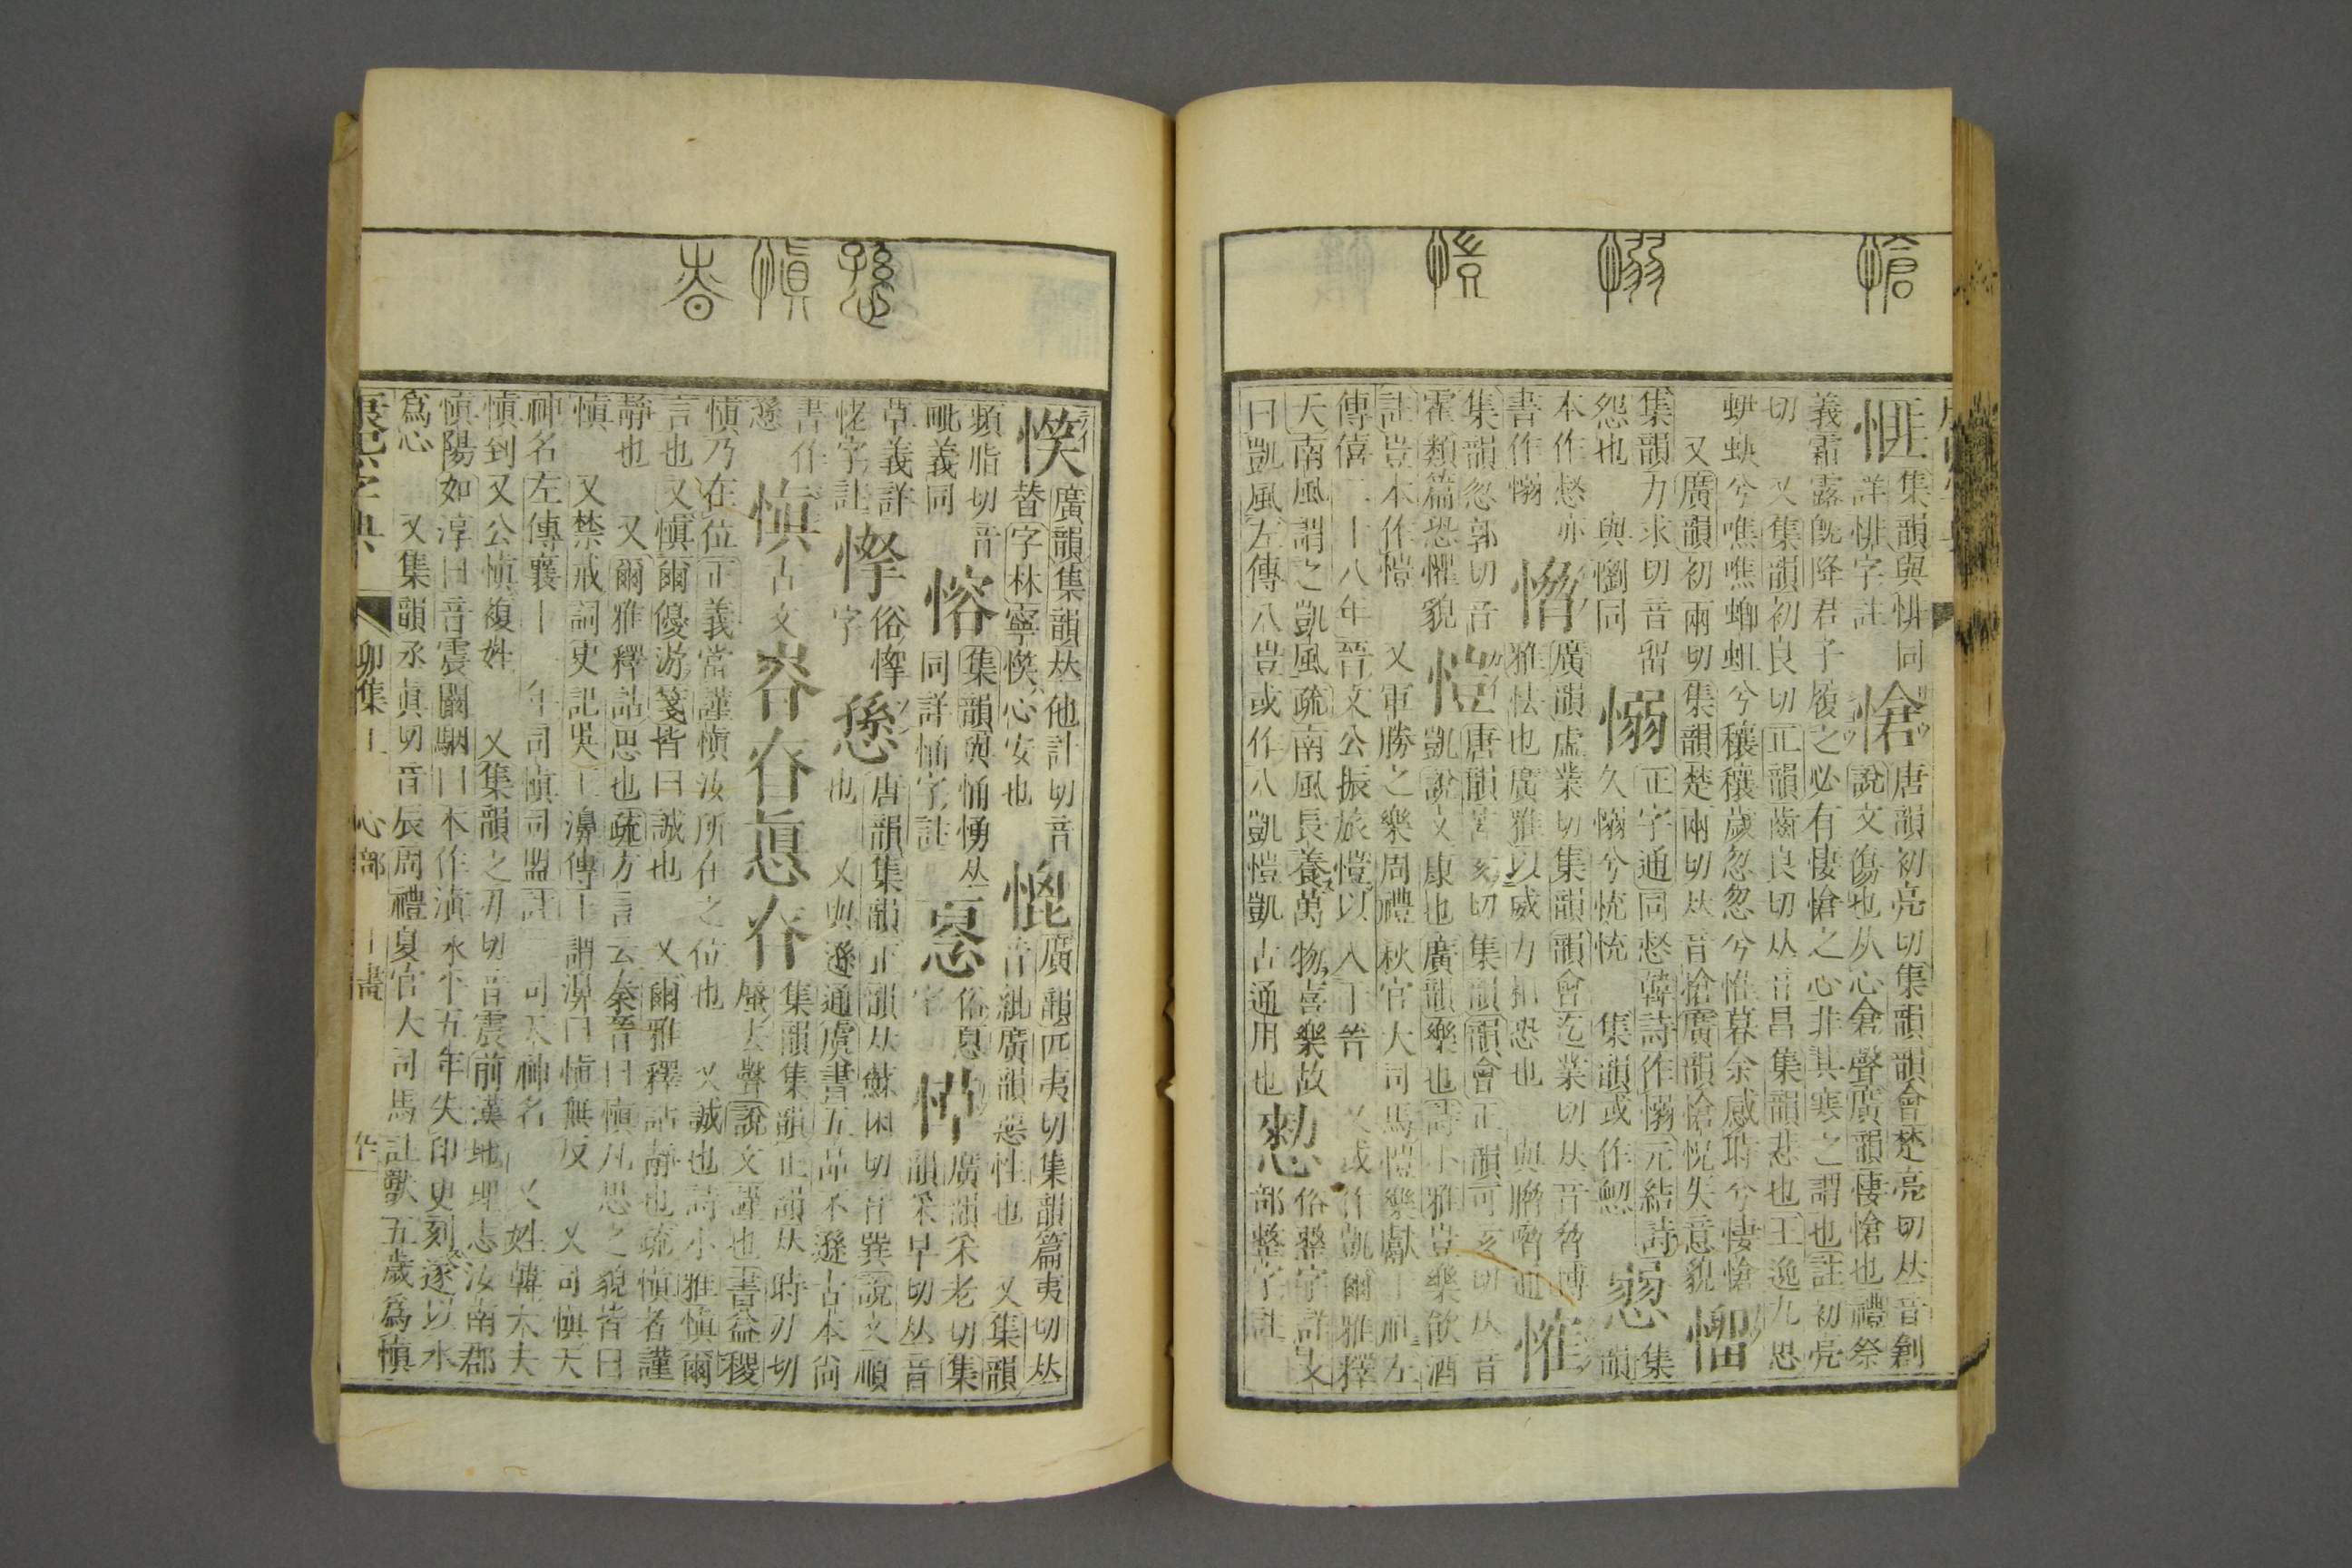 愴
愵
愷
𢜔集韻與悱同
詳悱字註
愴唐韻初亮切集韻韻會楚亮切𠀤音創
說文傷也从心倉聲廣韻悽愴也禮祭
義霜露旣降君子履之必有悽愴之心非其寒之謂也註初亮
切 又集韻初良切正韻齒良切𠀤音昌集韻悲也王逸九思
蛜蛷兮噍噍蝍蛆兮穰穰歲忽忽兮惟暮余感時兮悽愴
又廣韻初兩切集韻楚兩切𠀤音搶廣韻愴怳失意貌
慉
集韻力求切音留
怨也 與懰同
愵正字通同惄韓詩作愵元結詩
久愵兮怳怳
集韻或作
愵集韻
本作惄亦
書作愵
愶廣韻虛業切集韻韻會迄業切𠀤音脅博
雅怯也廣雅以威力相恐也 與脅通
集韻忽郭切音
霍類篇恐懼貌
愷唐韻苦亥切集韻韻會正韻可亥切𠀤音
凱說文康也廣韻樂也詩小雅豈樂飮酒
註豈本作愷 又軍勝之樂周禮秋官大司馬愷樂獻于社左
傳僖二十八年晉文公振旅愷以入于晉 又或作凱爾雅釋
天南風謂之凱風疏南風長養萬物喜樂故
曰凱風左傳八豈或作八凱愷凱古通用也
俗整字詳攴
部整字註
愻
愼
昚
廣韻集韻𠀤他計切音
替字林寧㥆心安也
廣韻匹夷切集韻篇夷切𠀤
音紕廣韻惡性也 又集韻
頻脂切音
毗義同
愹集韻與悀愑𠀤
同詳悀字註
俗息
字
愺廣韻采老切集
韻采早切𠀤音
草義詳
恅字註
俗悻
字
愻唐韻集韻正韻𠀤蘇困切音巽說文順
也 又與遜通虞書五品不遜古本尙
書作
愻
愼古文昚
集韻集韻正韻𠀤時刃切
蜃去聲說文謹也書益稷
愼乃在位正義當謹愼汝所在之位也 又誠也詩小雅愼爾
言也又愼爾優游箋皆曰誠也 又爾雅釋詁靜也疏愼者謹
靜也 又爾雅釋詁思也疏方言云秦晉曰愼凡思之貌皆曰
愼 又禁戒詞史記吳王濞傳上謂濞曰愼無反 又司愼天
神名左傳襄十一年司愼司盟註二司天神名 又姓韓大夫
愼到又公愼複姓 又集韻之刃切音震前漢地理志汝南郡
愼陽如淳曰音震闞駰曰本作滇永平五年失印更刻遂以水
爲心 又集韻丞眞切音辰周禮夏官大司馬註獸五歲爲愼
康熙字典 卯集上 心部 十畫